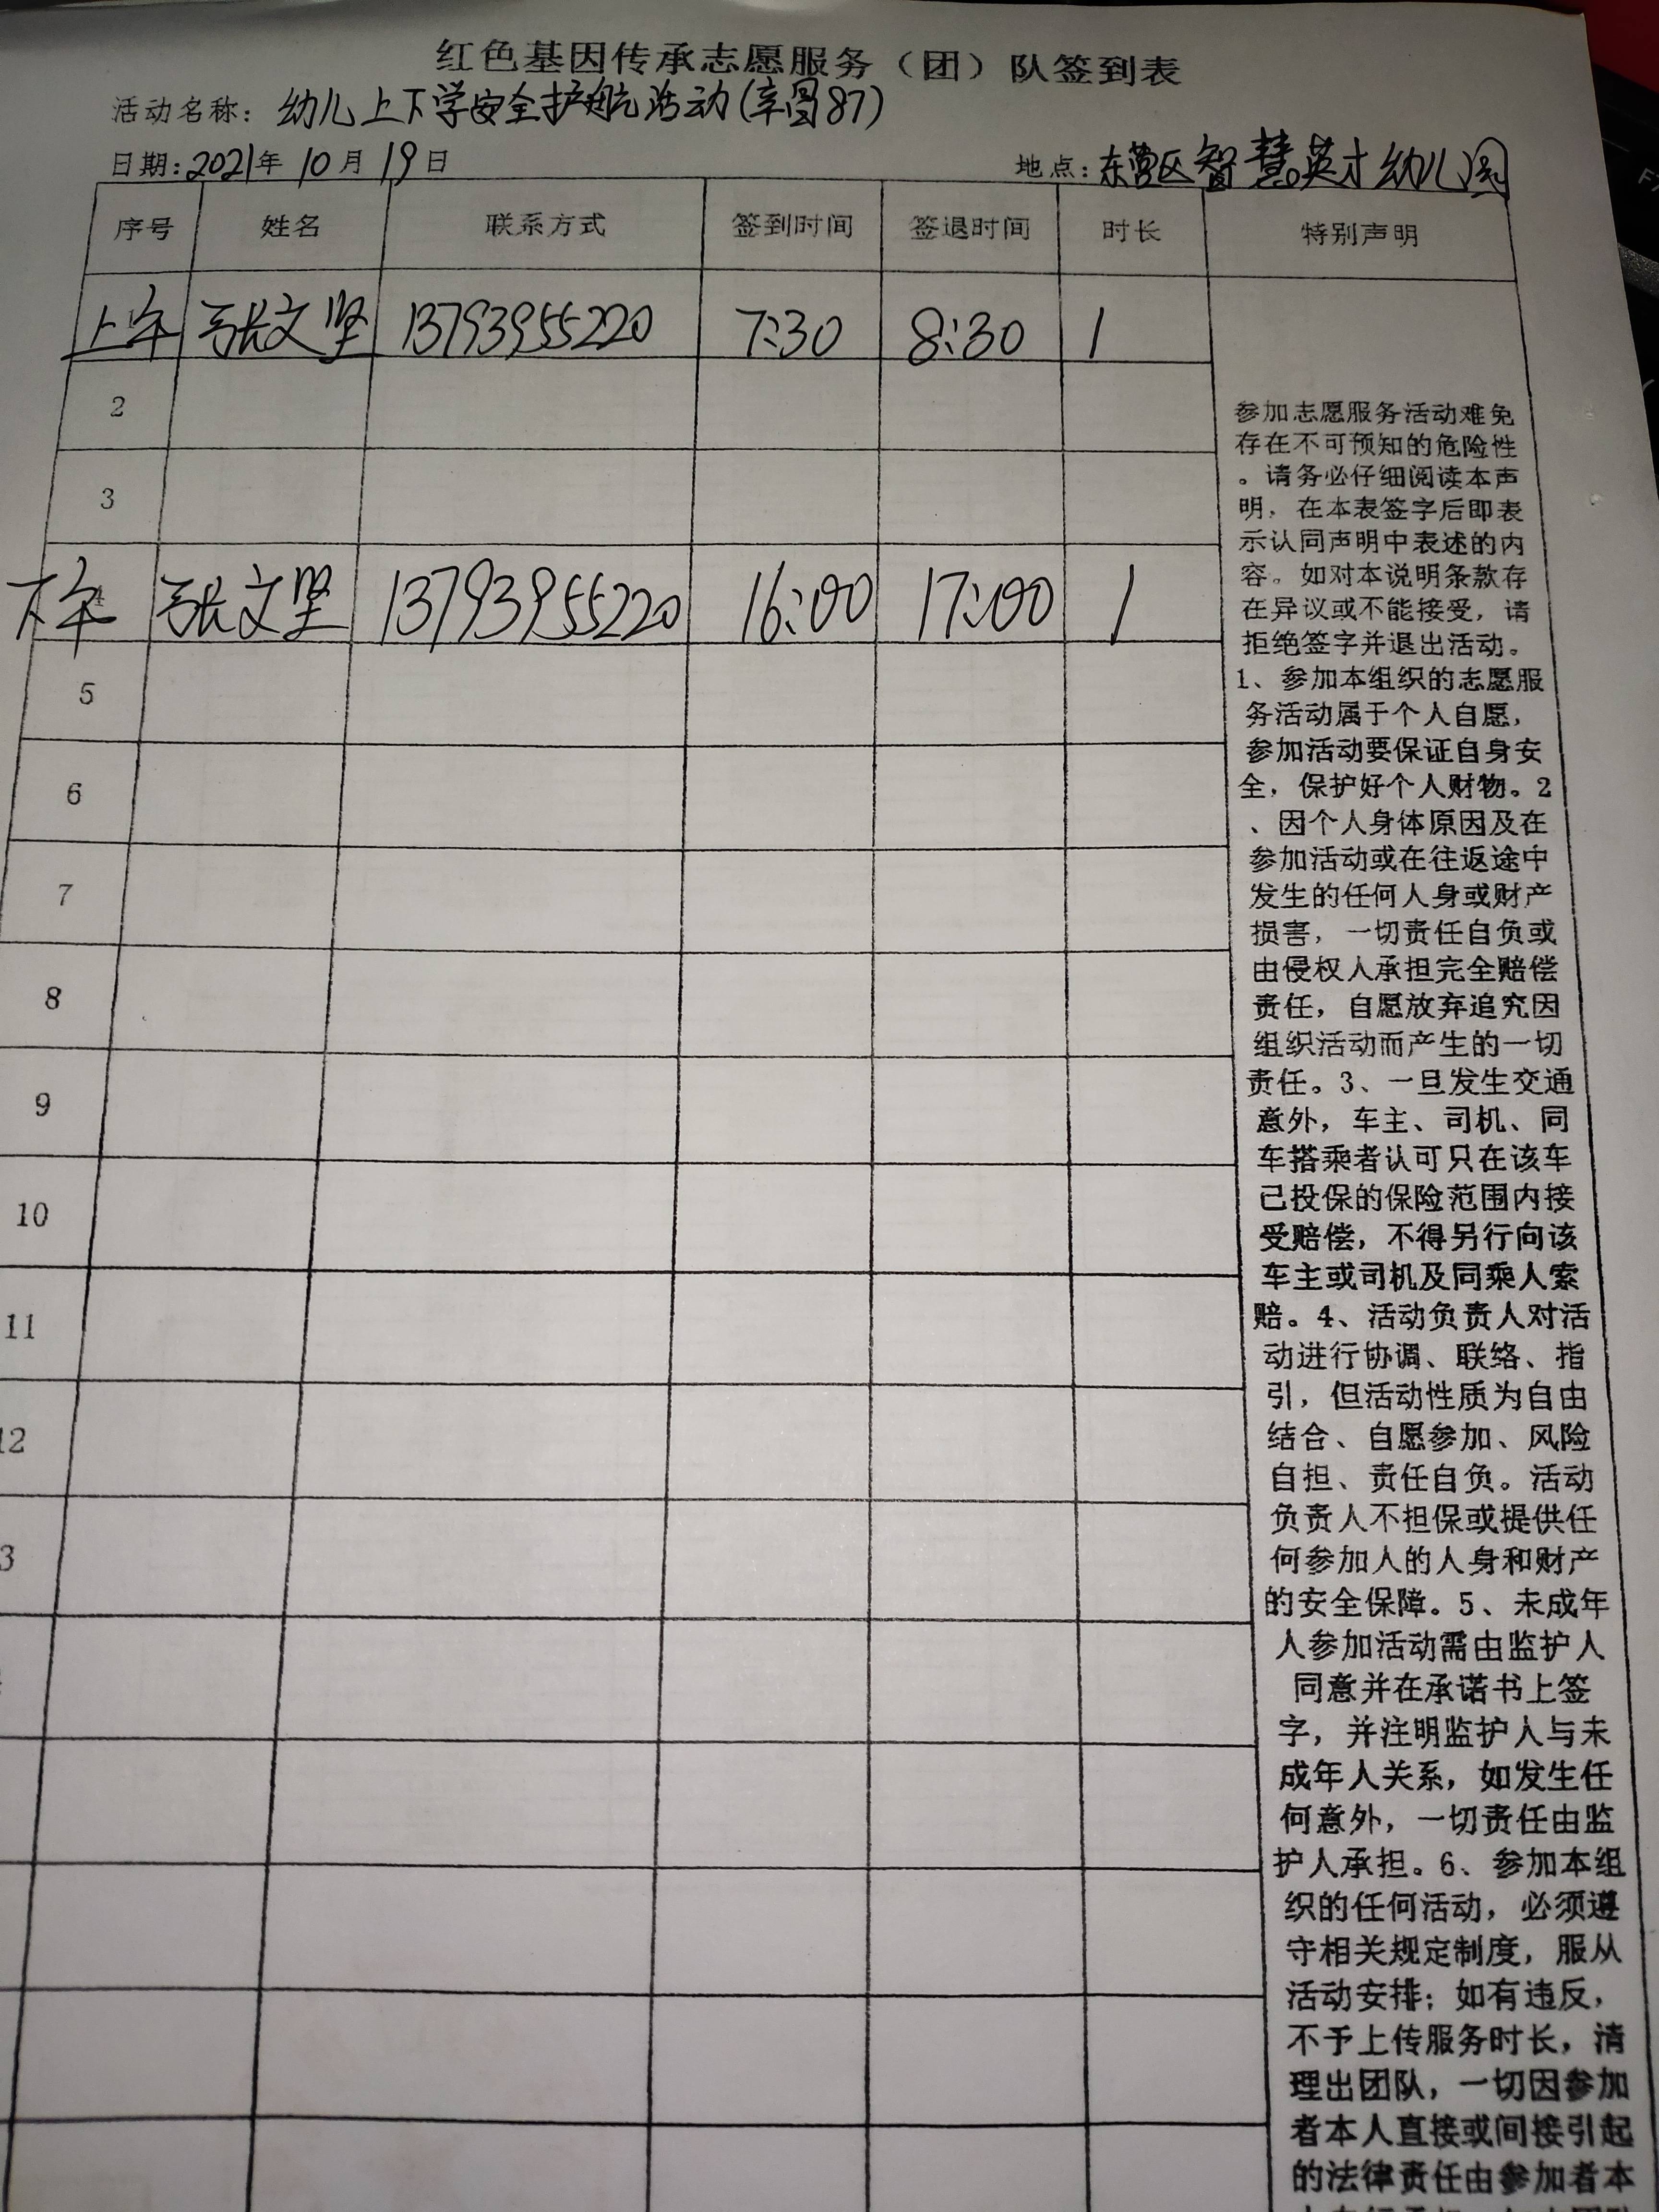 红色基因传承志愿服务（团）队签到表
活动名称：幼儿上下学安全护航活动(辛图87)
日期：2021年 10月 19日 地点：东营区智慧英才幼儿园
序号 姓名 联系方式 签到时间 签退时间 时长 特别声明
上午 张文坚 13793955220 7:30 8:30 1
2
3
下午 张文坚 13793955220 16:00 17:00 1
5
6
7
8
9
10
11
12
3
参加志愿服务活动难免
存在不可预知的危险性
。请务必仔细阅读本声
明，在本表签字后即表
示认同声明中表述的内
容。如对本说明条款存
在异议或不能接受，请
拒绝签字并退出活动。
1、参加本组织的志愿服
务活动属于个人自愿，
参加活动要保证自身安
全，保护好个人财物。2
、因个人身体原因及在
参加活动或在往返途中
发生的任何人身或财产
损害，一切责任自负或
由侵权人承担完全赔偿
责任，自愿放弃追究因
组织活动而产生的一切
责任。3、一旦发生交通
意外，车主、司机、同
车搭乘者认可只在该车
已投保的保险范围内接
受赔偿，不得另行向该
车主或司机及同乘人索
赔。4、活动负责人对活
动进行协调、联络、指
引，但活动性质为自由
结合、自愿参加、风险
自担、责任自负。活动
负责人不担保或提供任
何参加人的人身和财产
的安全保障。5、未成年
人参加活动需由监护人
同意并在承诺书上签
字，并注明监护人与未
成年人关系，如发生任
何意外，一切责任由监
护人承担。6、参加本组
织的任何活动，必须遵
守相关规定制度，服从
活动安排；如有违反，
不予上传服务时长，清
理出团队，一切因参加
者本人直接或间接引起
的法律责任由参加者本